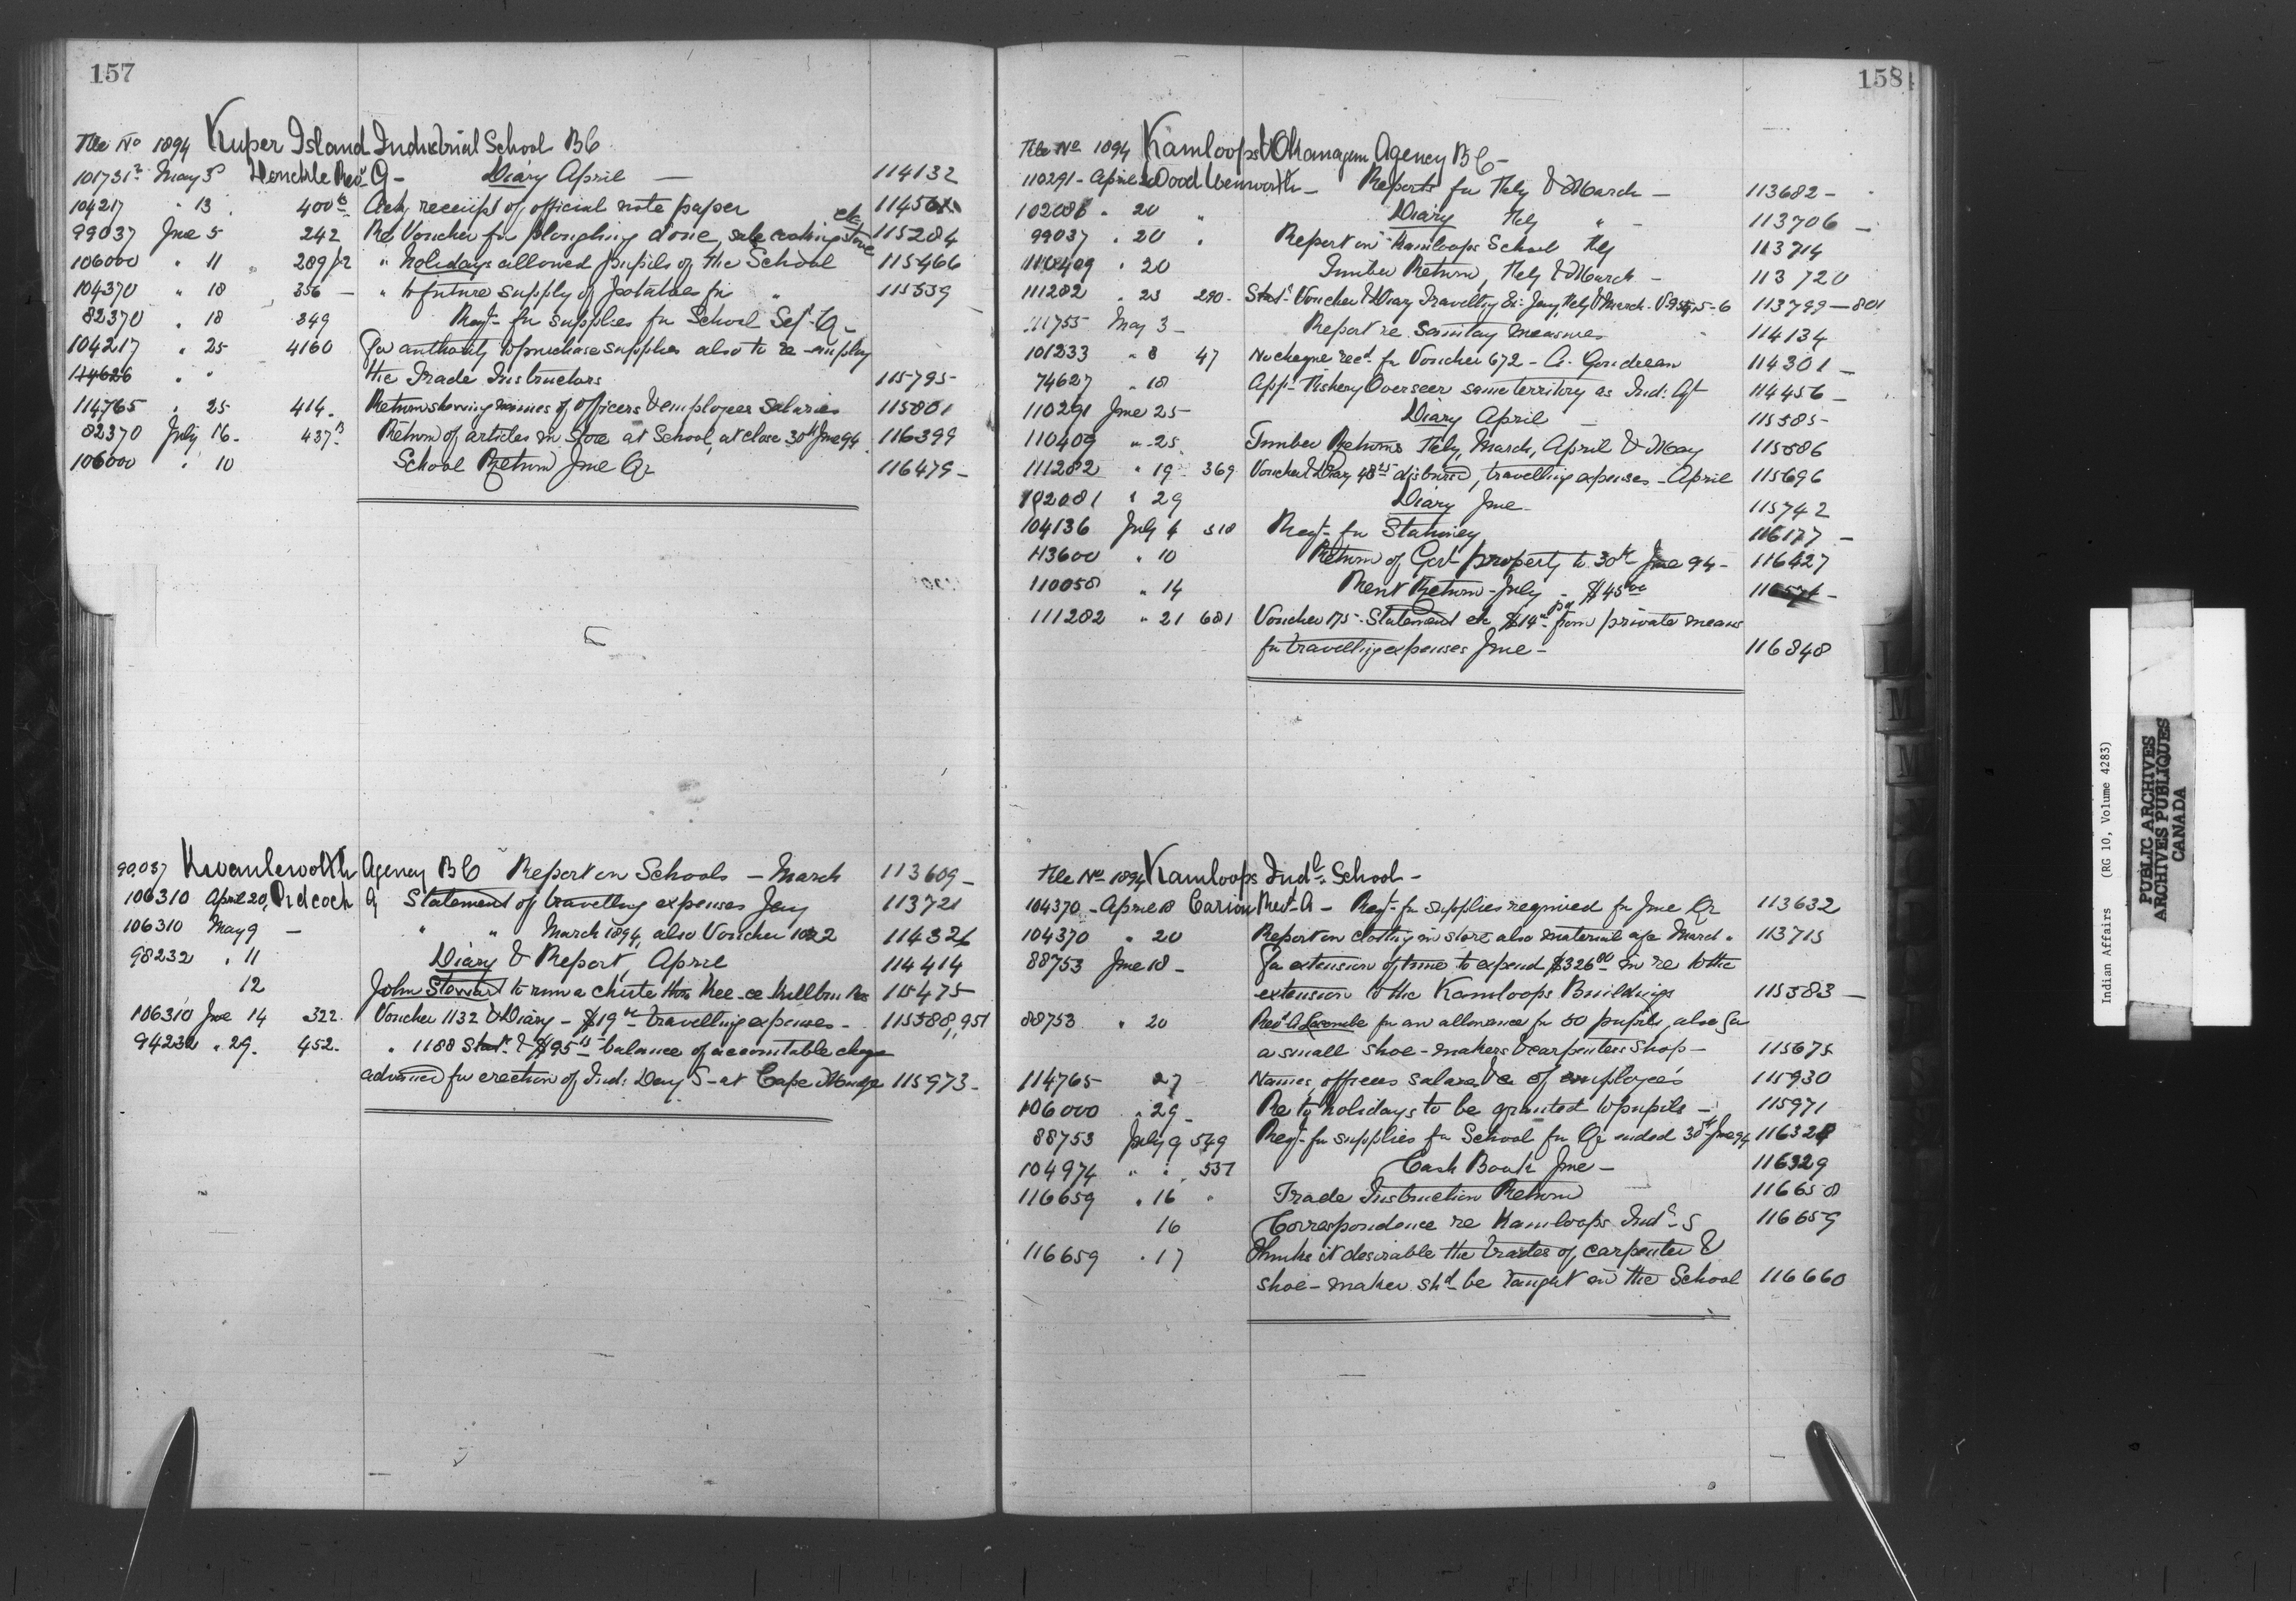 157
File No 1894 Kuper Island Industrial School BC
101731 2 May 3 Donckele Rev G - Diary April - 114132
104217 " 13 400 Ack receipt of official note paper
99037 June 5 242 Re Voucher for ploughing done, sale cooking stove etc 115284
106000 " 11 289 " holidays allowed pupils of the School 115466
104370 " 18 356 - " to future supply of potatoes for " 115539
82370 " 18 349 Reqt- for supplies for School Sept Q-
104217 " 25 4160 For authority to purchase supplies also to re-employ
114626 " " the Trade Instructors 115795
114765 " 25 414 Return showing names of officers & employees salaries 115801
82370 July 16 - 437 Return of articles in store at School, at close 30th June 94 116399
106000 " 10 School Return June Qr 116479 -
90,037 Kwawkewlth Agency BC Report on Schools - March 113609 -
106310 April 20, Pidcock Statement of travelling expenses Jany 113721
106310 May 9 - " " March 1894, also Voucher 1022 114326
98232 " 11 Diary & Report April 114414
12 John Stewart to run a chute thro 115475
106310 June 14 322 Voucher 1132 & Diary - $19 travelling expenses - 115588, 951
94232 " 29. 452. " 1188 Stat & $95 balance of accountable chque
advanced for erection of Ind: Day S - at Cape Mudge 115973 -
158
File No 1894 Kamloops & Okanagan Agency BC -
110291 - April 20 Wood Wentworth - Reports for Feby & March - 113682 -
102081 " 20 " Diary Feby " - 113706 -
99037 " 20 " Report on Kamloops School Feby 113714
110409 " 20 Timber Return, Feby & March - 113720
111282 " 23 290 - Stat Voucher & Diary Travelling Ex - Jany, Feby & March - 113799 - 801
111755 May 3 - Report re sanitary measures 114134
101233 " 8 47 No cheque recd. for Voucher 672 - G. Goudreau 114301 -
74627 " 18 App - Fishery Overseer same territory as Ind: Agt 114456 -
110291 June 25 - Diary April - 115585 -
110409 " 25 Timber Returns Feby, March, April & May 115586
111282 " 19 369 Voucher & Diary 48 disbursed, travelling expenses - April 115696
102081 " 29 Diary June - 115742
104136 July 4 518 Reqt - for Stationery 116177 -
113600 " 10 Return of Govt property to 30th June 94 - 116427
110058 " 14 Rent Return - July - $45
111282 " 21 681 Voucher 175 - Statement etc $14 - pd from private means
for travelling expenses June - 116848
File No 1894 Kamloops Indl. School -
104370 - April 18 Carion Revd - A - Reqt - for supplies required for June Qr 113632
104370 " 20 Report on clothing in store also material a/c March " 113715
88753 June 18 - For extension of time to expend $326.00 in re to the
extension to the Kamloops Buildings 115583 -
88753 " 20 Revd A Lacombe for an allowance for 50 pupils, also for
a small shoe-makers & carpenters shop - 115675
114765 27 Names, officers salaries &c of employees 115930
106000 " 29 - Re to holidays to be granted to pupils - 115971
88753 July 9 549 Reqt - for supplies for School for Qr ended 30th June 94 116328
104974 " " 557 Cash Book June - 116329
116659 " 16 " Trade Instruction Return 116658
16 Correspondence re Kamloops Indl - S 116659
116659 " 17 Thinks it desirable the trades of carpenter &
shoe-maker shd - be taught in the School 116660
L
M
M
Indian Affairs (RG 10, Volume 4283)
PUBLIC ARCHIVES
ARCHIVES PUBLIQUES
CANADA